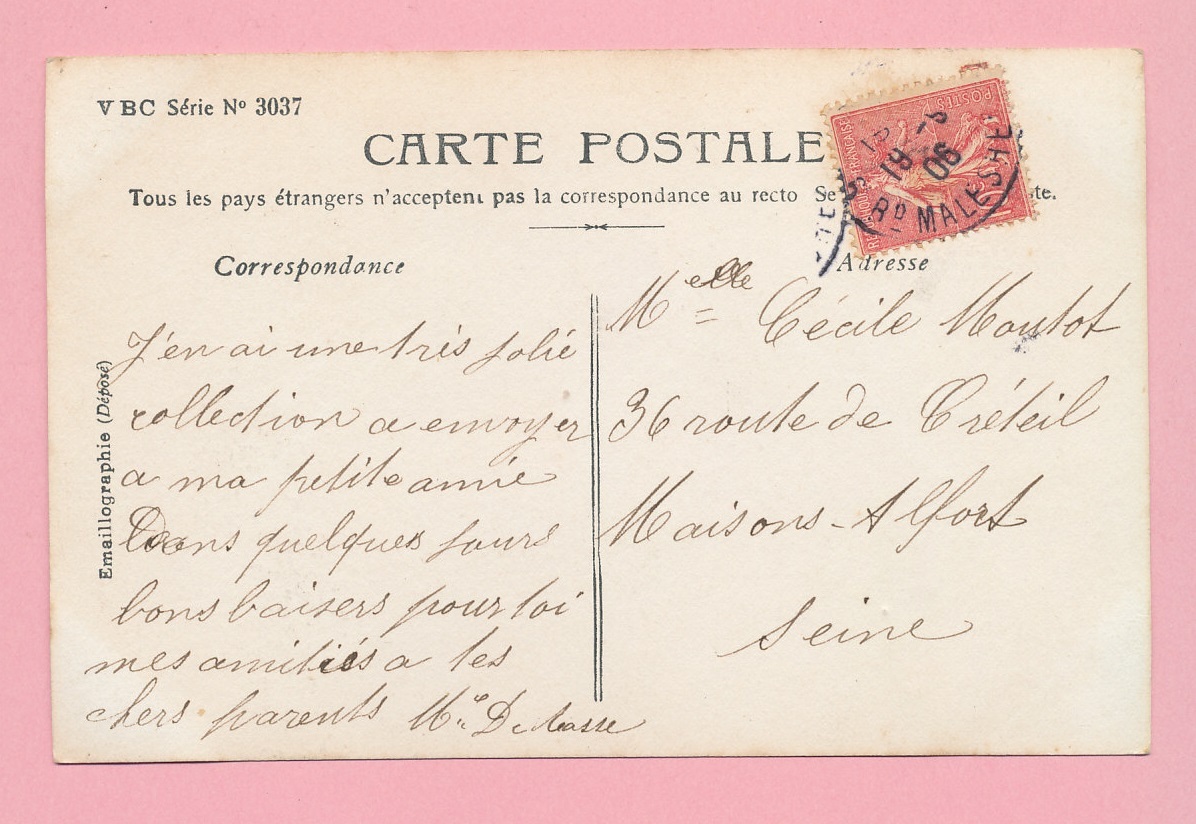 VBC Série Nº 3037
CARTE POSTALE
Tous les pays étrangers n'acceptent pas la correspondance au recto Se te.
POSTES
FRANÇAISE
19 -8
06
Bᴰ MALESHE
Correspondance
Adresse
J'en ai une très jolie
collection a envoyer
a ma petite amie
Dans quelques jours
bons baisers pour toi
mes amitiés a tes
chers parents Mᵉ
Emaillographie (Déposé)
Melle Cécile Moutot
36 route de Créteil
Maisons-Alfort
Seine